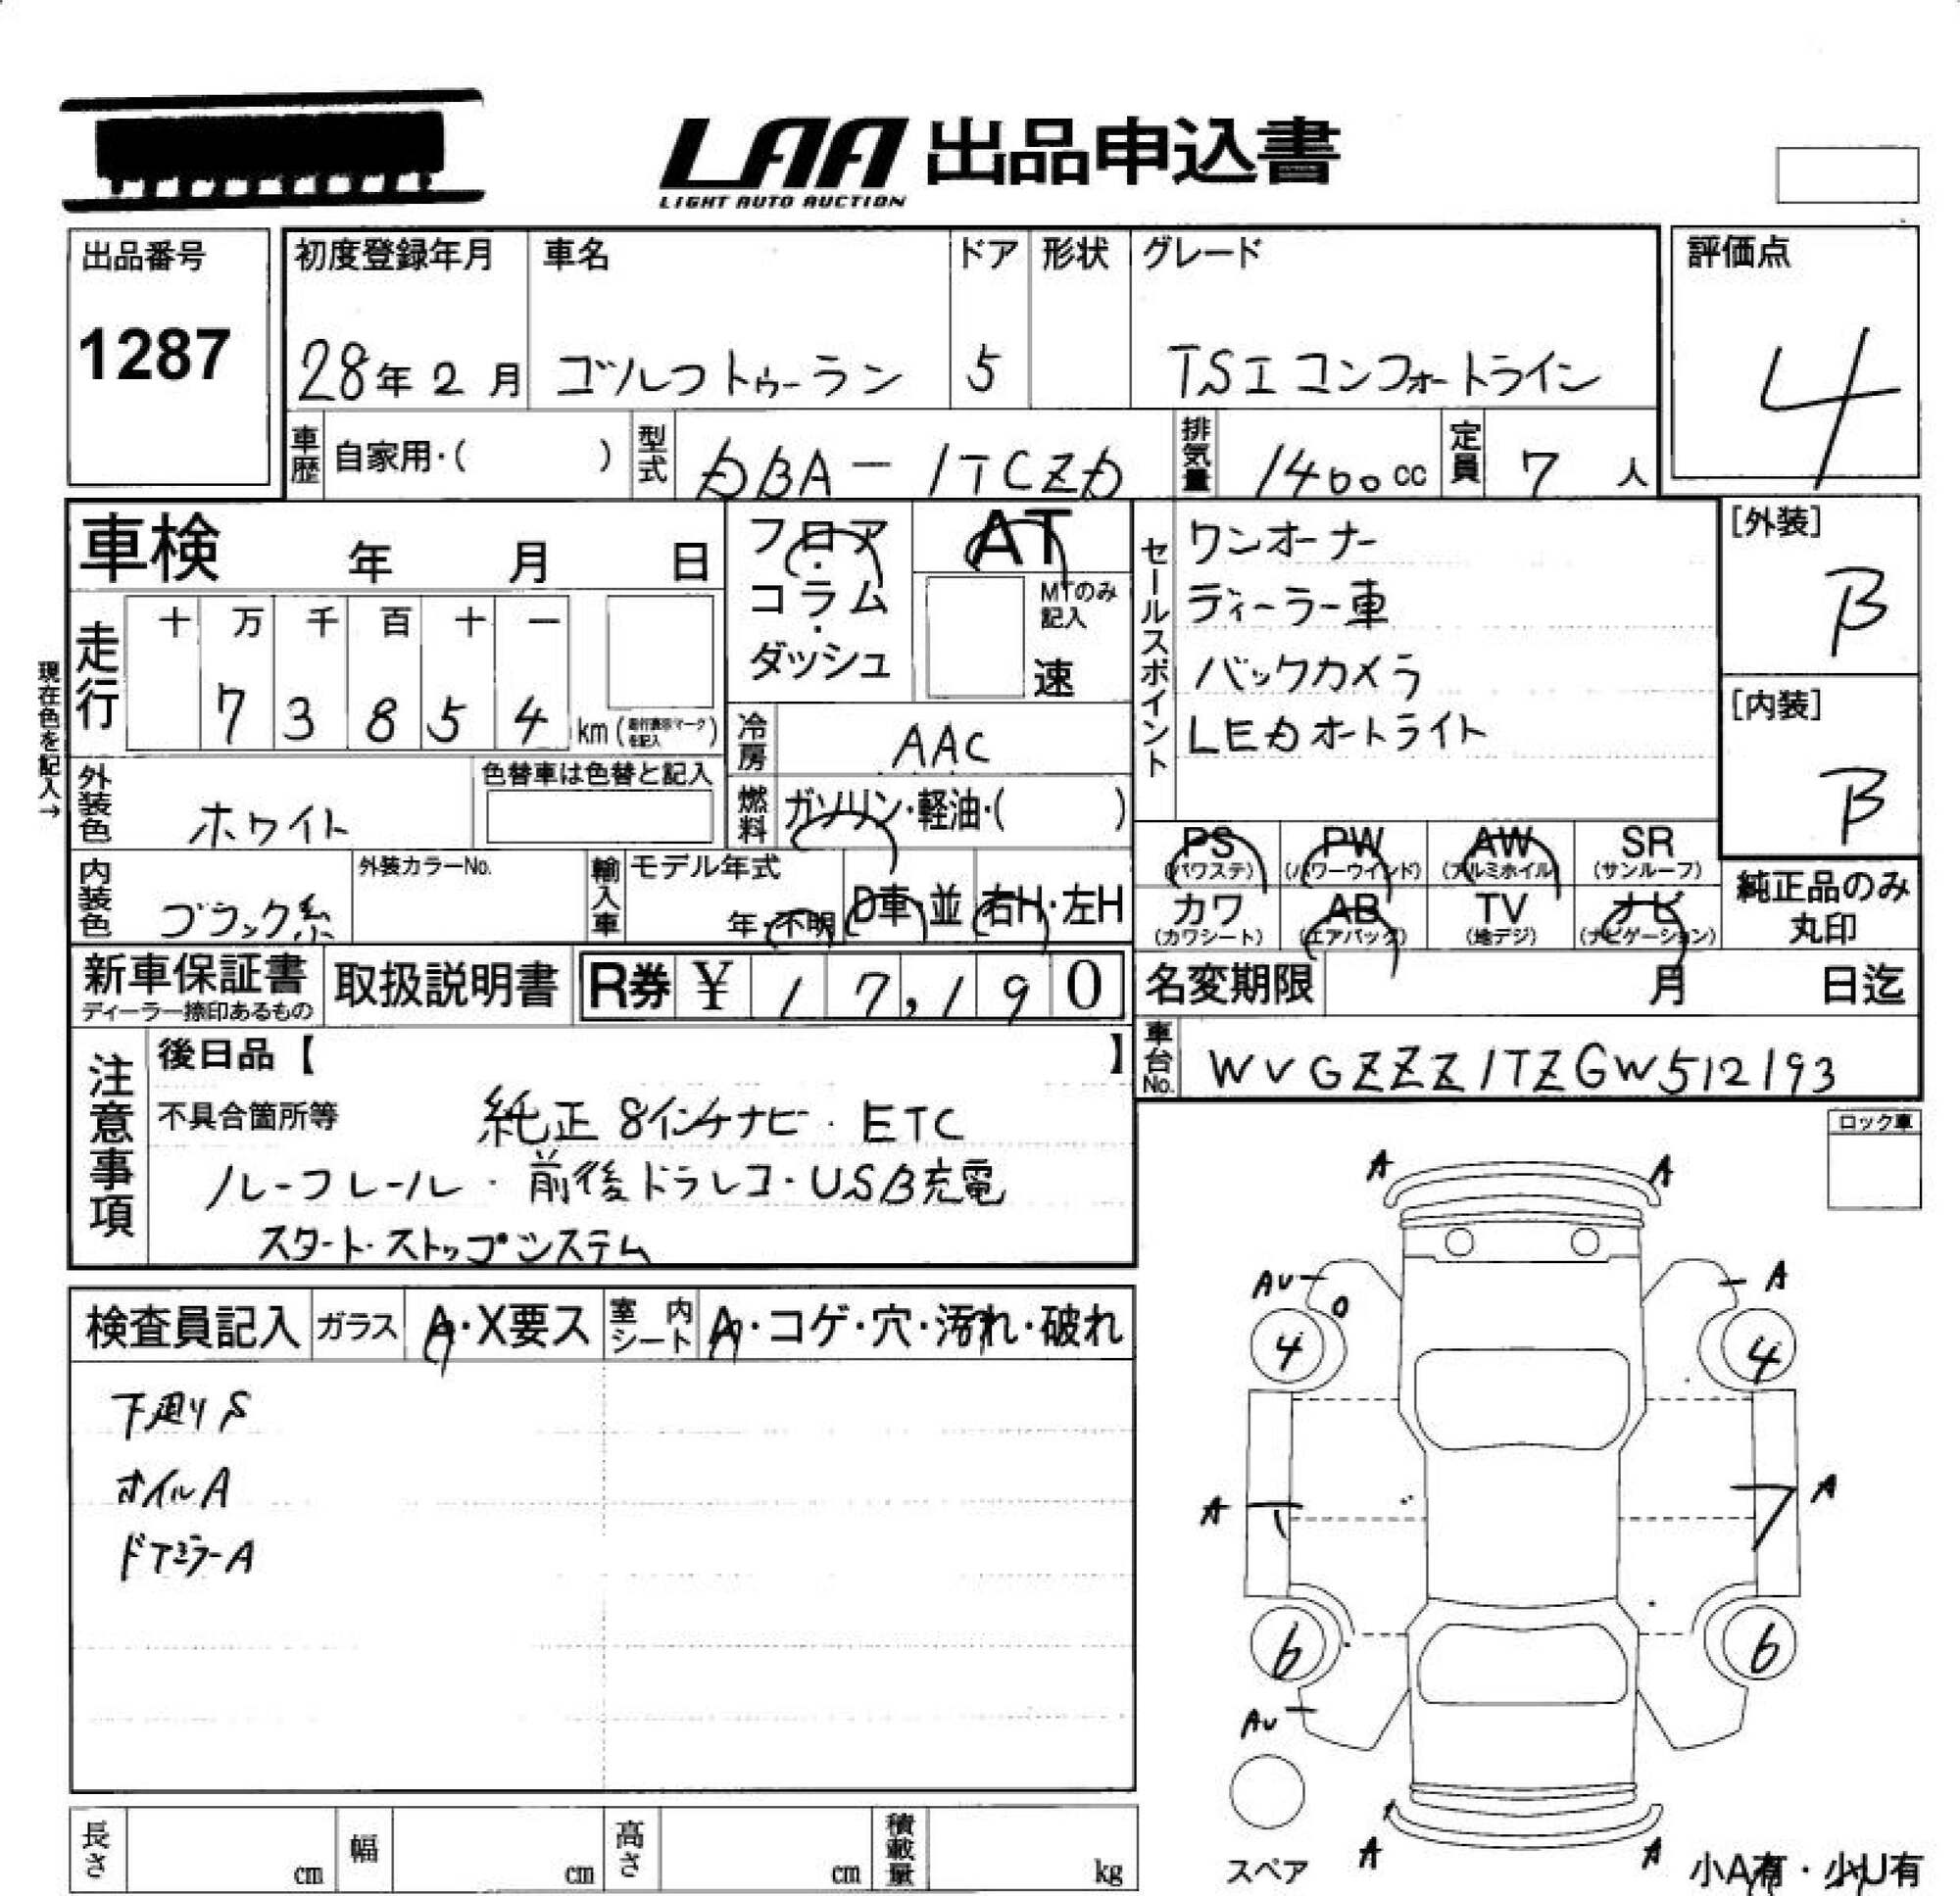 LAA 出品申込書
LIGHT AUTO AUCTION
出品番号 1287
初度登録年月 28年2月
車名 ゴルフトゥーラン
ドア 5
形状
グレード TSI コンフォートライン
評価点 4
車歴 自家用・( )
型式 DBA-1TCZD
排気量 1400cc
定員 7人
車検 年 月 日
フロア・コラム・ダッシュ
AT
MTのみ記入
速
セールスポイント
ワンオーナー
ディーラー車
バックカメラ
LEDオートライト
[外装] B
[内装] B
現在色を記入→
走行 十 万 千 百 十 一
7 3 8 5 4 km (走行表示マークを記入)
冷房 AAC
外装色 ホワイト
色替車は色替と記入
燃料 ガソリン・軽油・( )
PS (パワステ) PW (パワーウインド) AW (アルミホイル) SR (サンルーフ)
カワ (カワシート) AB (エアバッグ) TV (地デジ) ナビ (ナビゲーション)
純正品のみ丸印
内装色 ブラック系
外装カラーNo.
輸入車 モデル年式 年・不明 D車・並 右H・左H
新車保証書
ディーラー捺印あるもの
取扱説明書
R券 ¥ 17,190
名変期限 月 日迄
車台No. WVGZZZ1TZGW512193
注意事項
後日品【 】
不具合箇所等 純正8インチナビ・ETC
ルーフレール・前後ドラレコ・USB充電
スタート・ストップシステム
ロック車
検査員記入 ガラス A・X要ス 室内シート A・コゲ・穴・汚れ・破れ
下廻りS
ホイルA
ドアミラーA
A A
AU A
4 4
A A
6 6
AU
スペア
A A
小A有・少U有
長さ cm 幅 cm 高さ cm 積載量 kg